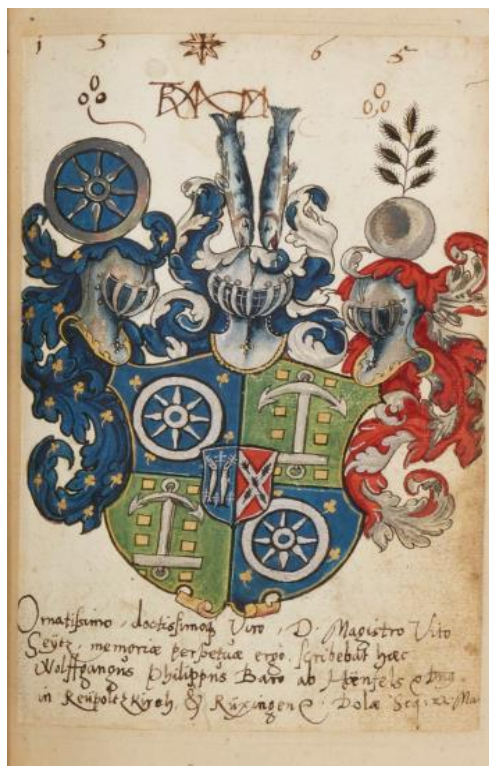 1 5 6 5
Ornatissimo, doctissimoq Viro, D. Magistro Vito
Seÿtz, memoriæ perpetuæ ergo, scribebat hæc
Wolffgangus Philippus Baro ab Hohenfels
in Reüpoltzkirch, & Rüxingen Dolæ